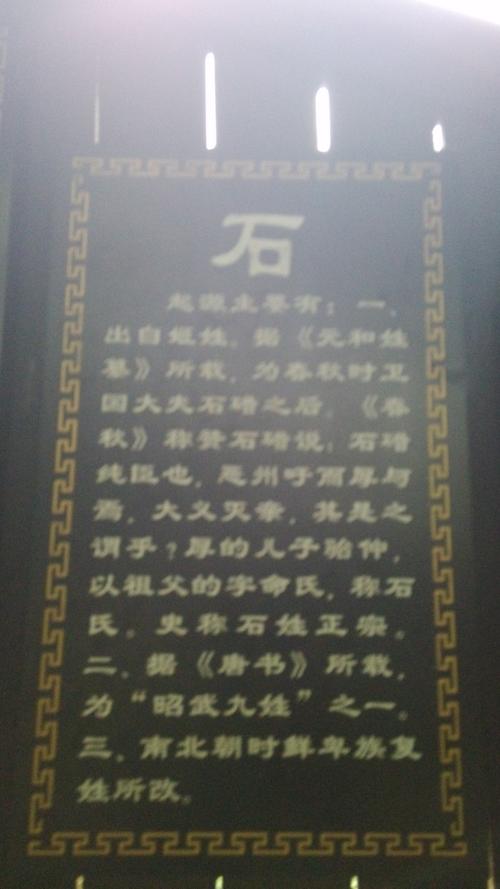 石
起源主要有：一、
出自姬姓。据《元和姓
纂》所载，为春秋时卫
国大夫石碏之后。《春
秋》称赞石碏说：石碏
纯臣也，恶州吁而厚与
焉，大义灭亲，其是之
谓乎？厚的儿子骀仲，
以祖父的字命氏，称石
氏。史称石姓正宗。
二、据《唐书》所载，
为“昭武九姓”之一。
三、南北朝时鲜卑族复
姓所改。